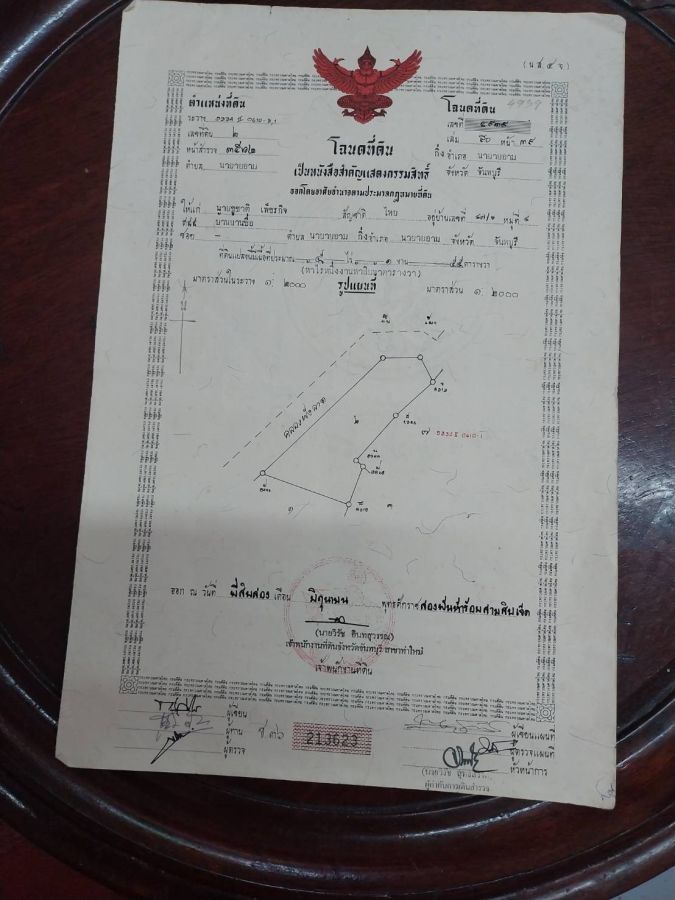 (น.ส.๔ จ)
ตำแหน่งที่ดิน
ระวาง ๕๓๓๔ II 0610-2,1
เลขที่ดิน ๒
หน้าสำรวจ
ตำบล นายายอาม
โฉนดที่ดิน
เลขที่ ๔๙๓๙
4939
เล่ม ๕๐ หน้า ๓๙
กิ่งอำเภอ นายายอาม
จังหวัด จันทบุรี
โฉนดที่ดิน
เป็นหนังสือสำคัญแสดงกรรมสิทธิ์
ออกโดยอาศัยอำนาจตามประมวลกฎหมายที่ดิน
ให้แก่ นายชูชาติ สัญชาติ ไทย อยู่บ้านเลขที่ หมู่ที่ ๔
ซอย - ตำบล นายายอาม กิ่งอำเภอ นายายอาม จังหวัด จันทบุรี
ที่ดินแปลงนี้มีเนื้อที่ประมาณ ๕ ไร่ ๑ งาน ๕๕ ตารางวา
(ห้าไร่หนึ่งงานห้าสิบห้าตารางวา)
มาตราส่วนในระวาง ๑ : ๒๐๐๐
รูปแผนที่
มาตราส่วน ๑ : ๒๐๐๐
๒
๗
0610-1
๑
๓
ออก ณ วันที่ ยี่สิบสอง เดือน มิถุนายน พุทธศักราช สองพันห้าร้อยสามสิบเจ็ด
(นายวิรัช อินทสุวรรณ)
เจ้าพนักงานที่ดินจังหวัดจันทบุรี สาขาท่าใหม่
เจ้าพนักงานที่ดิน
ผู้เขียน
ผู้ทาน
ผู้ตรวจ
ช.๓๖
213623
ผู้เขียนแผนที่
ผู้ตรวจแผนที่
หัวหน้าการ
ผู้กำกับการเดินสำรวจ